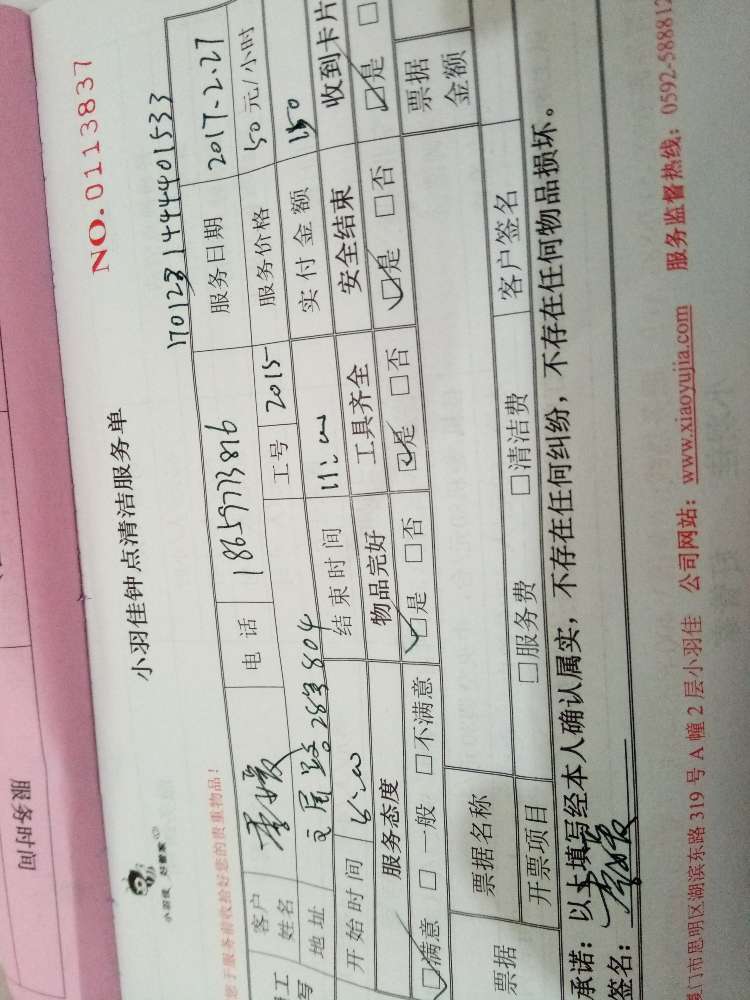 服务时间
NO.0113837
小羽佳钟点清洁服务单
小羽佳 好管家
您于服务前收拾好您的贵重物品!
1701231444401533
客户姓名 李媛 电话 18659773816 服务日期 2017-2-27
地址 283 804 工号 2015 服务价格 50元/小时
开始时间 结束时间 实付金额 150
服务态度 物品完好 工具齐全 安全结束 收到卡片
☑满意 □一般 □不满意 ☑是 □否 ☑是 □否 ☑是 □否 ☑是 □
票据 票据名称 票据金额
开票项目 □服务费 □清洁费 客户签名
承诺:以上填写经本人确认属实,不存在任何纠纷,不存在任何物品损坏。
签名:李媛
厦门市思明区湖滨东路 319 号 A 幢 2 层小羽佳 公司网站:www.xiaoyujia.com 服务监督热线:0592-588812